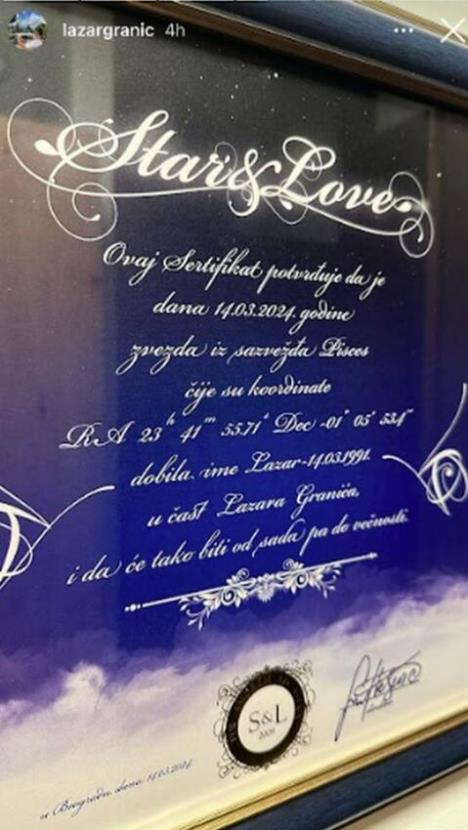 lazargranic 4h
Star&Love
Ovaj Sertifikat potvrđuje da je
dana 14.03.2024. godine
zvezda iz sazvežđa Pisces
čije su koordinate
RA 23ʰ 41ᵐ 55.71ˢ Dec -01° 05' 53.4"
dobila ime Lazar-14.03.1991.
u čast Lazara Granića,
i da će tako biti od sada pa do večnosti.
S&L
2008
u Beogradu, dana 14.03.2024.